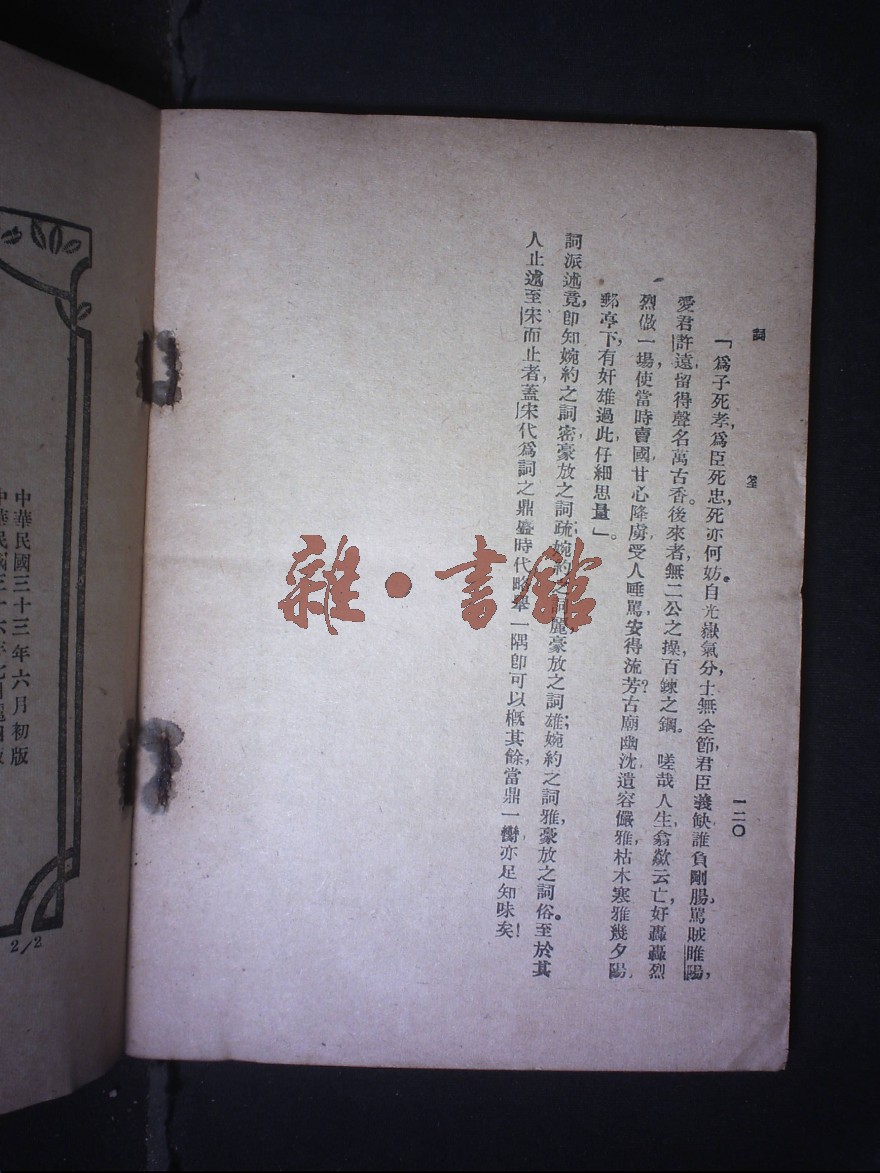 詞　筌
一二〇
「爲子死孝，爲臣死忠，死亦何妨。自光嶽氣分，士無全節，君臣義缺，誰負剛腸。罵賊睢陽，
愛君許遠，留得聲名萬古香。後來者，無二公之操，百鍊之鋼。　嗟哉人生，翕歘云亡，好轟轟烈
烈做一場。使當時賣國，甘心降虜，受人唾罵，安得流芳？古廟幽沈，遺容儼雅，枯木寒鴉幾夕陽，
郵亭下，有奸雄過此，仔細思量」。
詞派述竟，卽知婉約之詞密，豪放之詞疏；婉約之詞麗，豪放之詞雄；婉約之詞雅，豪放之詞俗。至於其
人止述至宋而止者，蓋宋代爲詞之鼎盛時代，略舉一隅，卽可以概其餘，當鼎一臠，亦足知味矣！
雜·書館
中華民國三十三年六月初版
2/2